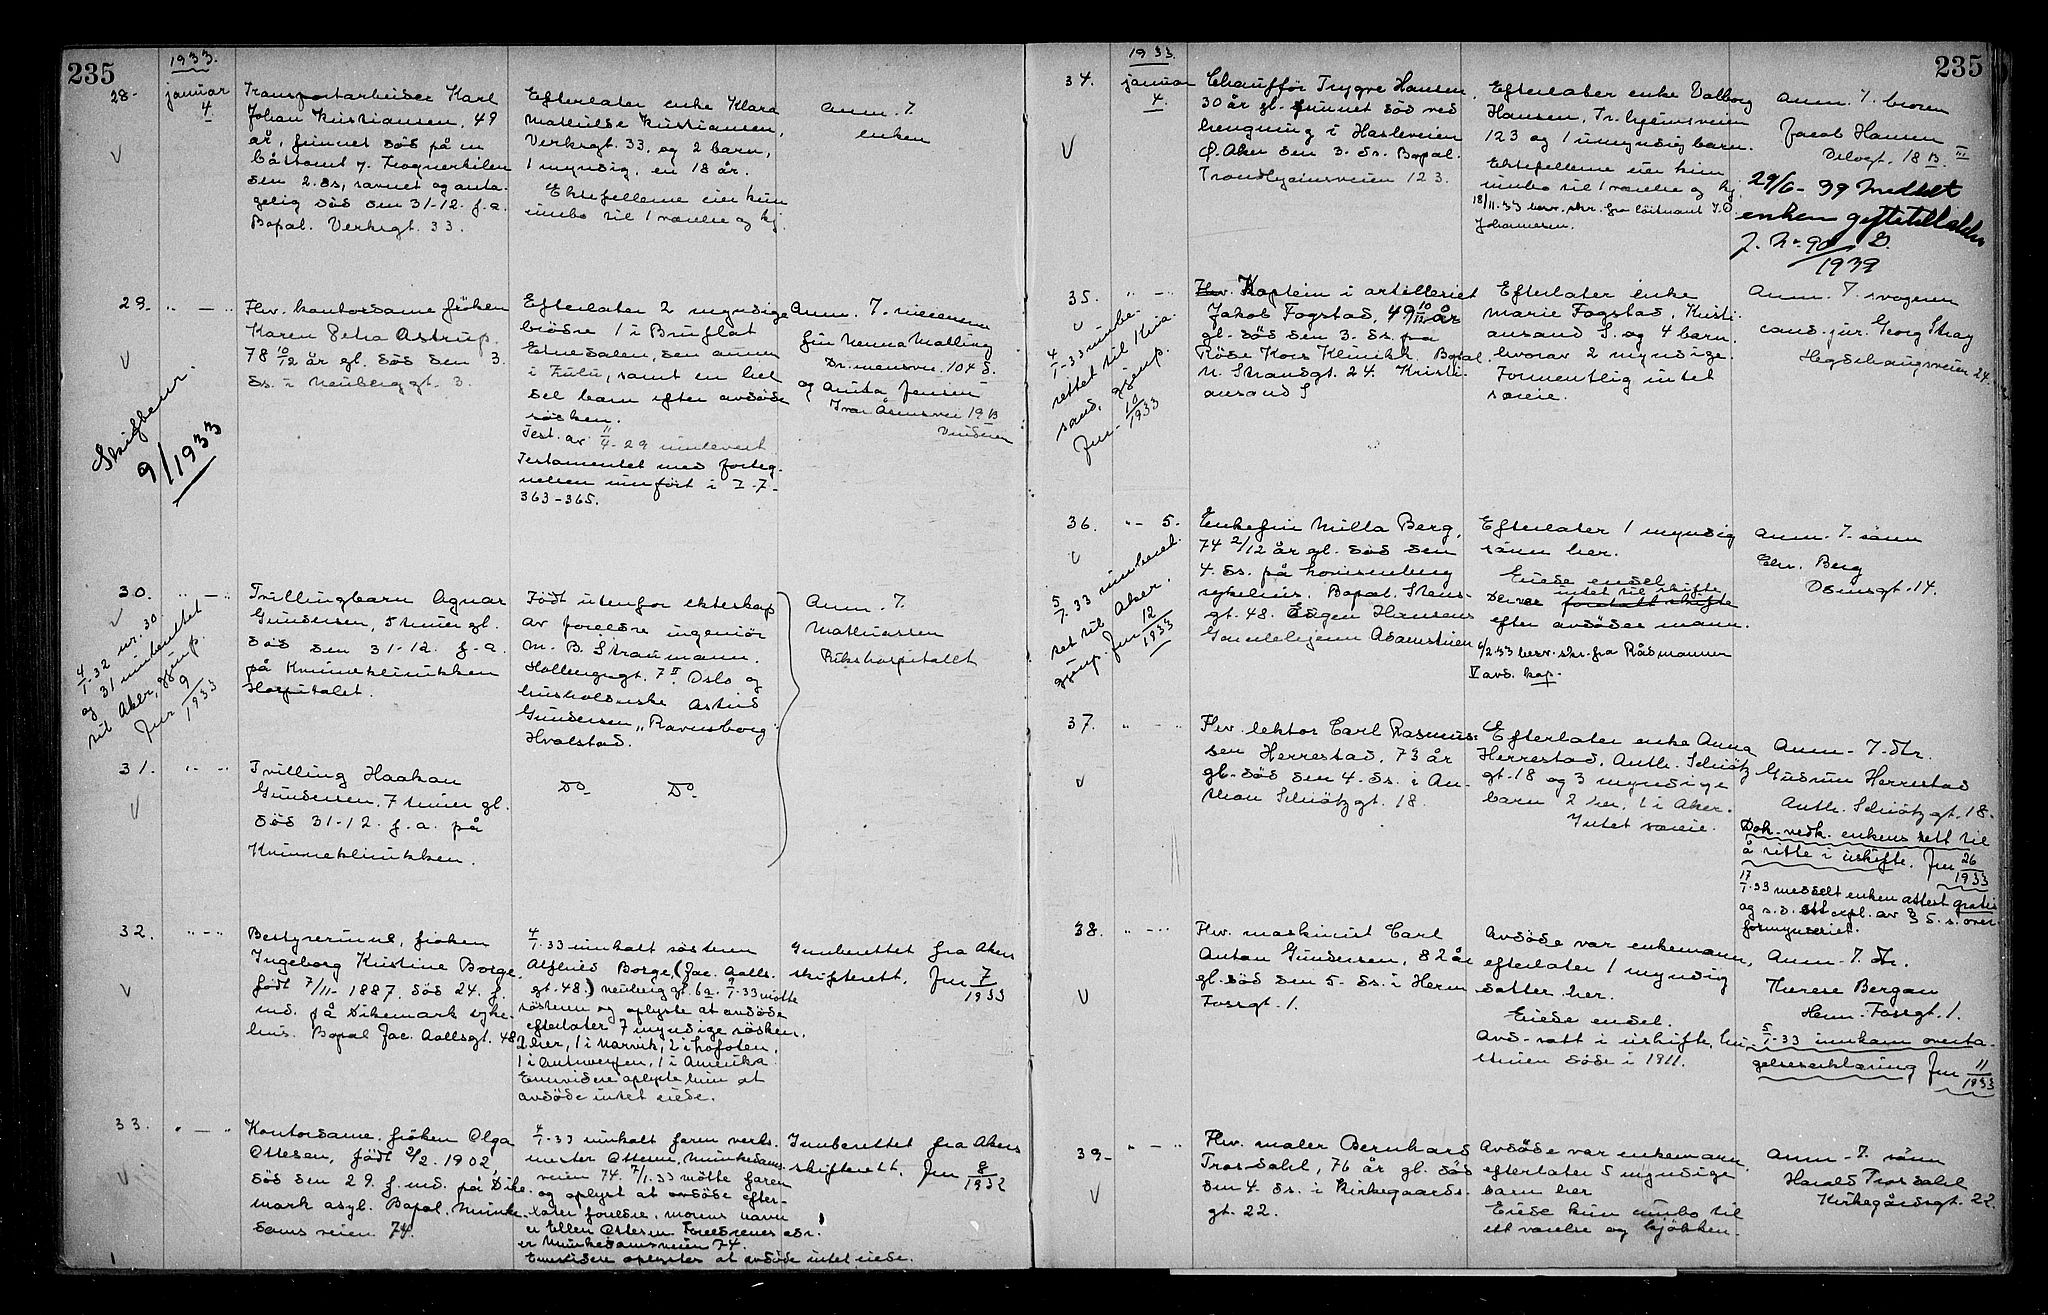 235
1933.
28- januar 4
Transportarbeider Karl
Johan Kristiansen, 49
år, funnet död på en
båttomt v. Frognerkilen
den 2. ds, savnet og anta-
gelig död den 31-12. f.a.
Bopal. Verksgt. 33.
Efterlater enke Klara
Mathilde Kristiansen,
Verksgt. 33. og 2 barn,
1 myndig, en 18 år.
Ektefellene eier kun
innbo til 1 værelse og kj.
Anm. 7.
enken
29. " — "
Fhv. kontordame fröken
Karen Petra Astrup.
78 10/12 år gl. död den 3.
ds. i Neuberggt. 3.
Efterlater 2 myndige
brödre 1 i Bruflat
Etnedalen, den annen
i Zulu, samt en hel
del barn efter avdöde
söken.
Test. av 11/4-29 innlevert
Testamentet med forteg-
nelsen innfört i I-7-
363-365.
Anm. 7. niesene
fru Nenna Malling
Drammensvei. 104 S.
og Anita Jensen
Ivar Åsensvei 19 B
Vinderen
9/1933
30. " — "
Tvillingbarn Agnar
Gundersen, 5 timer gl.
död den 31-12. f.a.
på Kvinneklinikken
Hospitalet.
Födt utenfor ekteskap
av foreldre ingeniör
M. B. Straumann.
Holbergsgt. 7 II Oslo og
husholderske Astrid
Gundersen "Ravnsborg"
Hvalstad.
Anm. 7.
Mathiassen
Rikshospitalet
4/1-32 nr. 30
og 31 innberettet
til Aker, gjenp.
Jnr 9/1933
31. " — "
Tvilling Haakon
Gundersen, 7 timer gl.
död 31-12. f.a. på
Kvinneklinikken.
Do Do
32. " — "
Bestyrerinne, fröken
Ingeborg Kristine Borge
födt 7/11-1887. död 24. f.
md. på Dikemark syke-
hus. Bopal Jac. Aallsgt. 48
4/1-33 innkalt sösteren
Alfhild Borge, (Jac. Aalls
gt. 48.) Neuberggt. 6a. 9/1-33 mötte
sösteren og oplyste at avdöde
efterlater 7 myndige sösken,
2 her, 1 i Narvik, 2 i Lofoten,
1 i Antwerpen, 1 i Amerika
Enwidere oplyste hun at
avdöde intet eiede.
Innberettet fra Akers
skifterett. Jnr 7/1933
33. " — "
Kontordame. fröken Olga
Ottesen, födt 2/2. 1902,
död den 29. f. md. på Dike
mark asyl. Bopal. Munke
dams veien 74.
4/1-33 innkalt faren verks-
mester Ottesen, Munkedams-
veien 74. 7/1-33 mötte faren
og oplyst at avdöde efter-
later foreldre, morens navn
er Ellen Ottesen Foreldrenes adr.
er Munkedamsveien 74.
Enwidere oplystes at avdöde intet eiede.
Innberettet fra Akers
skifterett. Jnr 8/1932
235
1933
34. januar 4.
Chauffför Trygve Hansen.
30 år gl. funnet död ved
hengning i Hasleveien
Ö. Aker den 3. ds. Bopal.
Trondhjemsveien 123.
Efterlater enke Valborg
Hansen, Tr.hjemsveien
123 og 1 umyndig barn.
Ektefellene eier kun
innbo til 1 værelse og kj.
18/11-33 besv. skr. fra löitnant J. O
Johannesen.
Anm. 7. broren
Jacob Hansen
18 B. III
29/6-39 meddelt
enken giftetillatelse
J. Nr 90/1939
35. " — "
Fhv. Kaptein i artilleriet
Jakob Fogstad, 49 10/12 år
gl. död den 3. ds. fra
Röde Kors Klinikk. Bopal
N. Strandgt. 24. Kristi-
ansand S
Efterlater enke
Marie Fogstad, Kristi-
ansand S. og 4 barn,
hvorav 2 myndige.
Formentlig intet
særeie.
Anm. 7. svogeren
cand. jur. Georg Stray
Hegdehaugsveien 24.
4/1-33 innbe-
rettet til Kria.
sand, gjenp.
Jnr- 10/1933
36. " — 5.
Enkefru Milla Berg,
74 2/12 år gl. död den
4. ds. på Lovisenberg
sykehus. Bopal. Stens-
gt. 48. Eugen Hansens
Gamlehjem Adamstuen
Efterlater 1 myndig
sönn her.
Eiede endel
intet til skifte
Der var foretatt skifte
efter avdödes mann.
6/2-33 besv. skr. fra Rådmannen
V avd. kap.
Anm. 7. sönn
Chr. Berg
Odinsgt. 14.
5/1.33 innberet-
tet til Aker.
gjenp. Jnr 12/1933
37. " — "
Fhv. lektor Carl Rasmus-
sen Herrestad, 73 år
gl. död den 4. ds. i An-
thon Schiötzgt. 18.
Efterlater enke Anna
Herrestad, Anth. Schiötz
gt. 18 og 3 myndige
barn 2 her, 1 i Aker.
Intet særeie.
Anm- 7. dtr.
Gudrun Herrestad
Anth. Schiötzgt. 18.
Dok. vedk. enkens rett til
å sitte i uskifte. Jnr 26/1933
17/1-33 meddelt enken attest gratis
og s.d. ett expl. av § 5. s. over-
formynderiet.
38. " — "
Fhv. maskinist Carl
Anton Gundersen, 82 år
gl. död den 5. ds. i Herm
Fossgt. 1.
Avdöde var enkemann,
efterlater 1 myndig
datter her.
Eiede endel.
Avd. satt i uskifte, hu-
struen döde i 1911.
Anm. 7. dtr.
Therese Bergan
Herm. Fossgt. 1.
5/1-33 innkom overta-
gelseserklæring Jnr 11/1933
39- " — "
Fhv. maler Bernhard
Trosdahl, 76 år gl. död
den 4. ds. i Kirkegaards-
gt. 22.
Avdöde var enkemann,
efterlater 5 myndige
barn her
Eiede kun innbo til
ett værelse og kjökken.
Anm- 7. sönn
Harald Trosdahl
Kirkegårdsgt. 22.